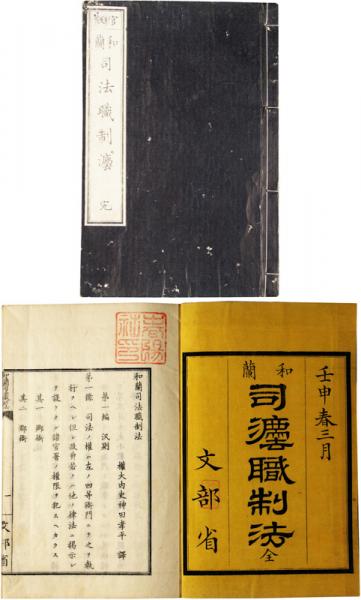 官
和蘭
司法職制灋
完
壬申春三月
和蘭
司灋職制法 全
文部省
和蘭司法職制法
權大内史神田孝平 譯
第一編 汎則
第一條 司法ノ權ハ左ノ四等衙門ニテ之ヲ執
行フヘシ但シ政府若クハ他ノ律法ニ掲示シ
テ設ケタル諸官署ノ權限ヲ犯スヘカラス
其一 鄕衙
其二 郡衙
一
文部省